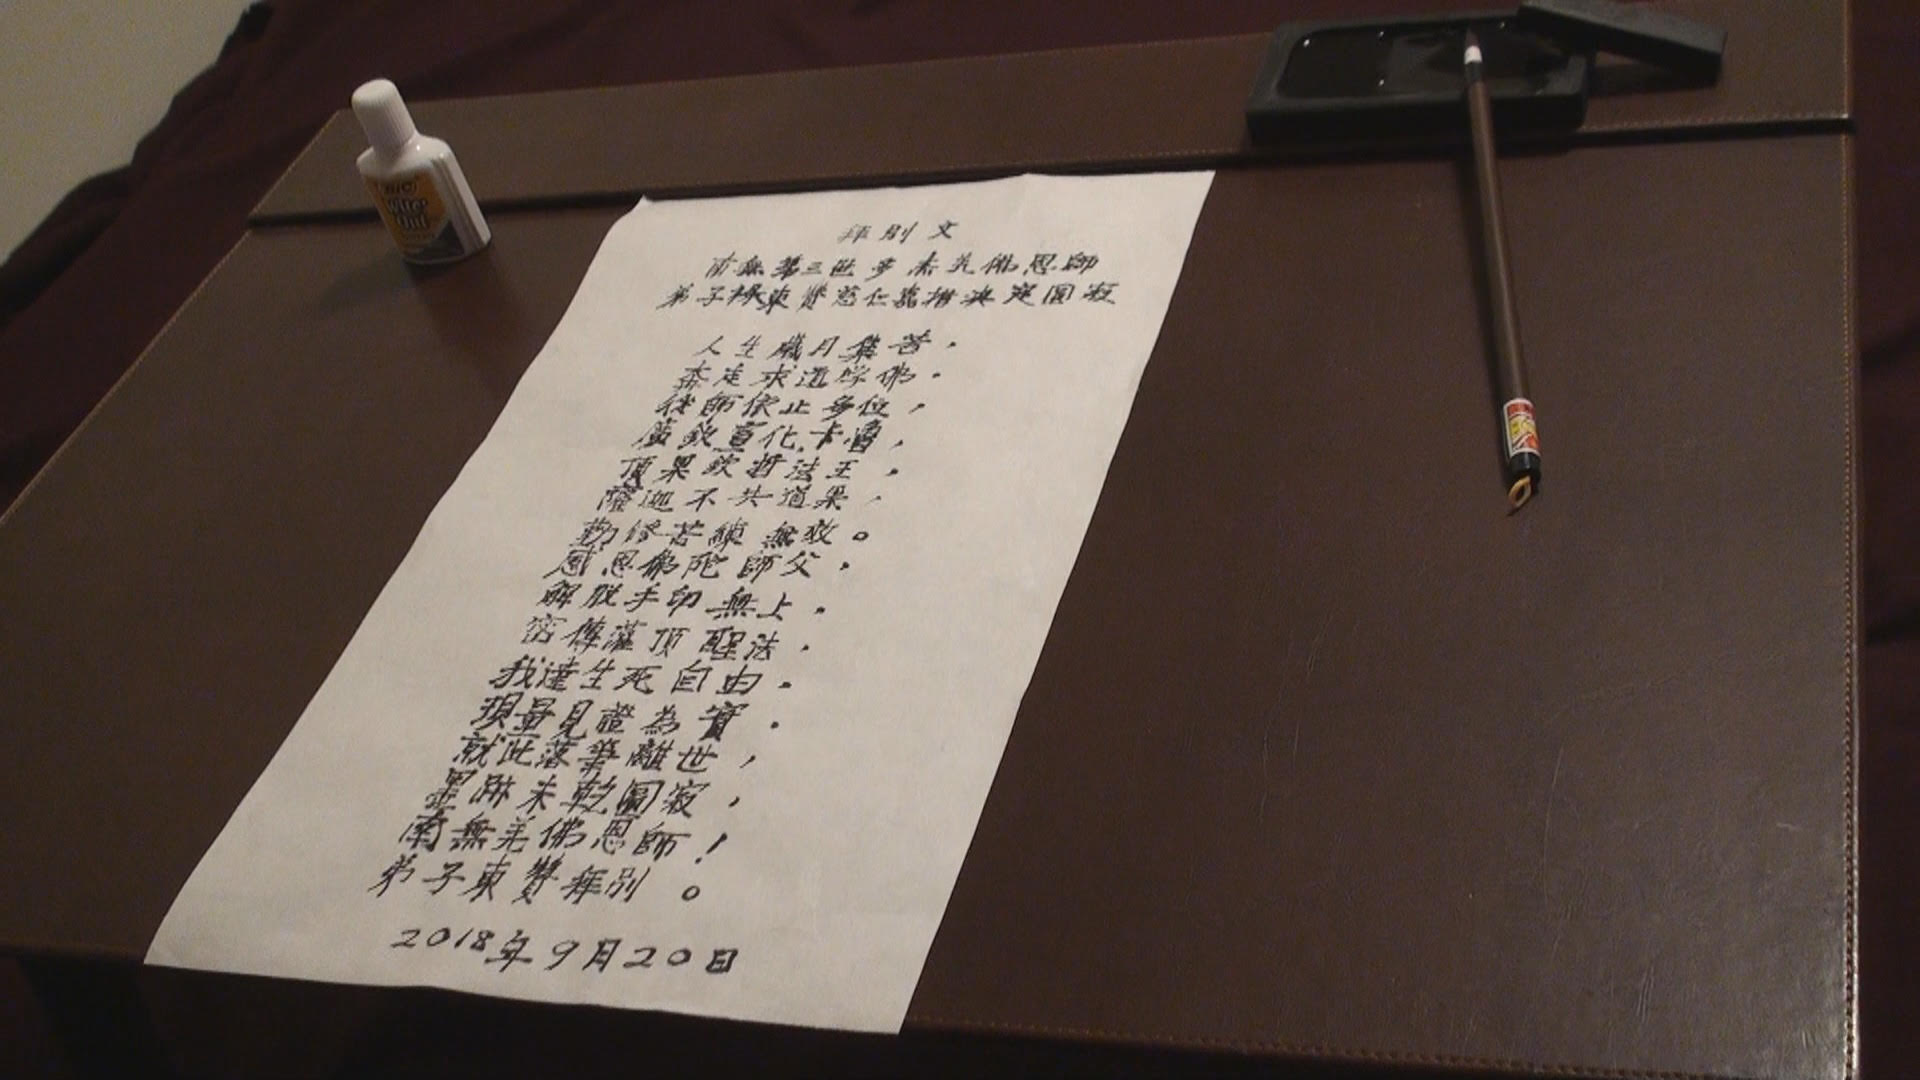 BIC
Wite
Out
拜別文
南無第三世多杰羌佛恩師
弟子楊東贊慈仁嘉措決定圓寂
人生歲月集苦，
奔走求道学佛。
從師依止多位，
廣欽宣化卡魯，
頂果欽哲法王，
薩迦不共道果，
勤修苦練無效。
感恩佛陀師父，
解脫手印無上。
密傳灌頂聖法，
我達生死自由。
現量見證為實。
就此落筆離世，
墨跡未乾圓寂，
南無羌佛恩師！
弟子東贊拜別。
2018年9月20日